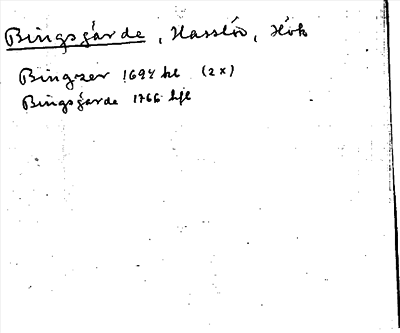 Bingsgärde, Hasslöv, Hök
Bingezer 1694 hl (2x)
Bingsgärde 1766 hfl